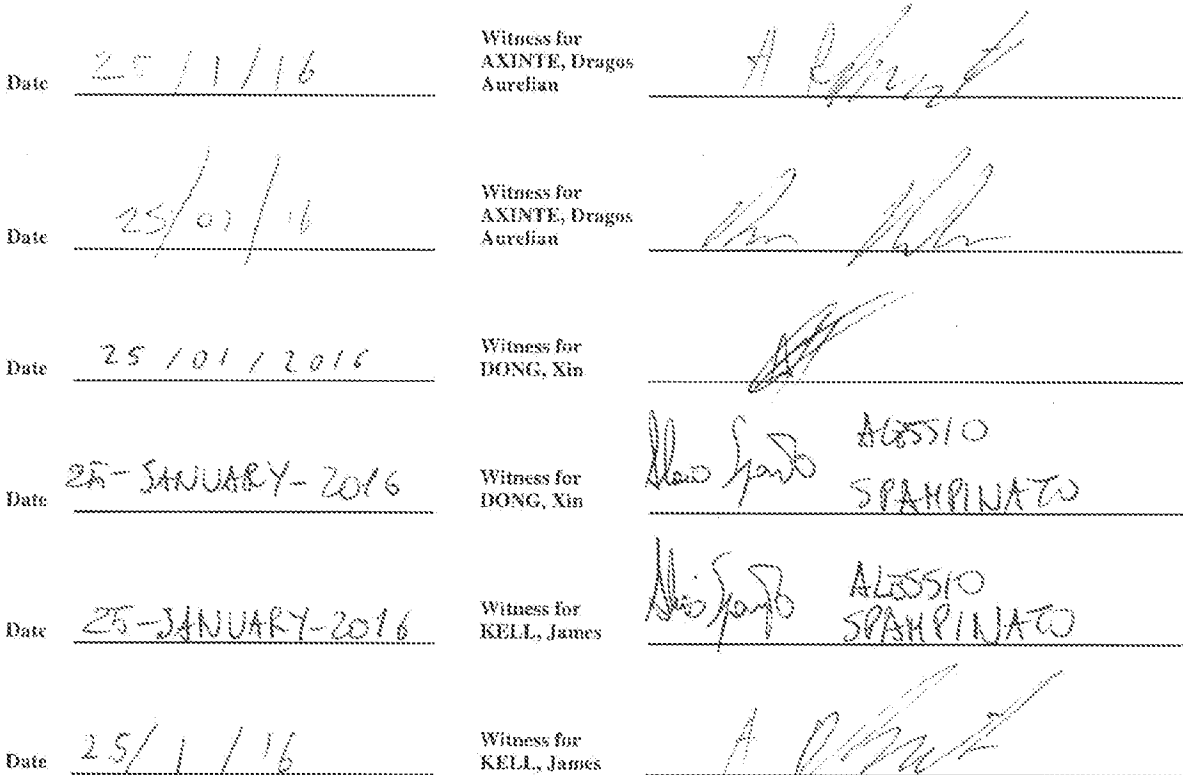 Date 25/1/16 Witness for
AXINTE, Dragos
Aurelian
Date 25/01/16 Witness for
AXINTE, Dragos
Aurelian
Date 25/01/2016 Witness for
DONG, Xin
Date 25-JANUARY-2016 Witness for
DONG, Xin
ALESSIO
SPAMPINATO
Date 25-JANUARY-2016 Witness for
KELL, James
ALESSIO
SPAMPINATO
Date 25/1/16 Witness for
KELL, James